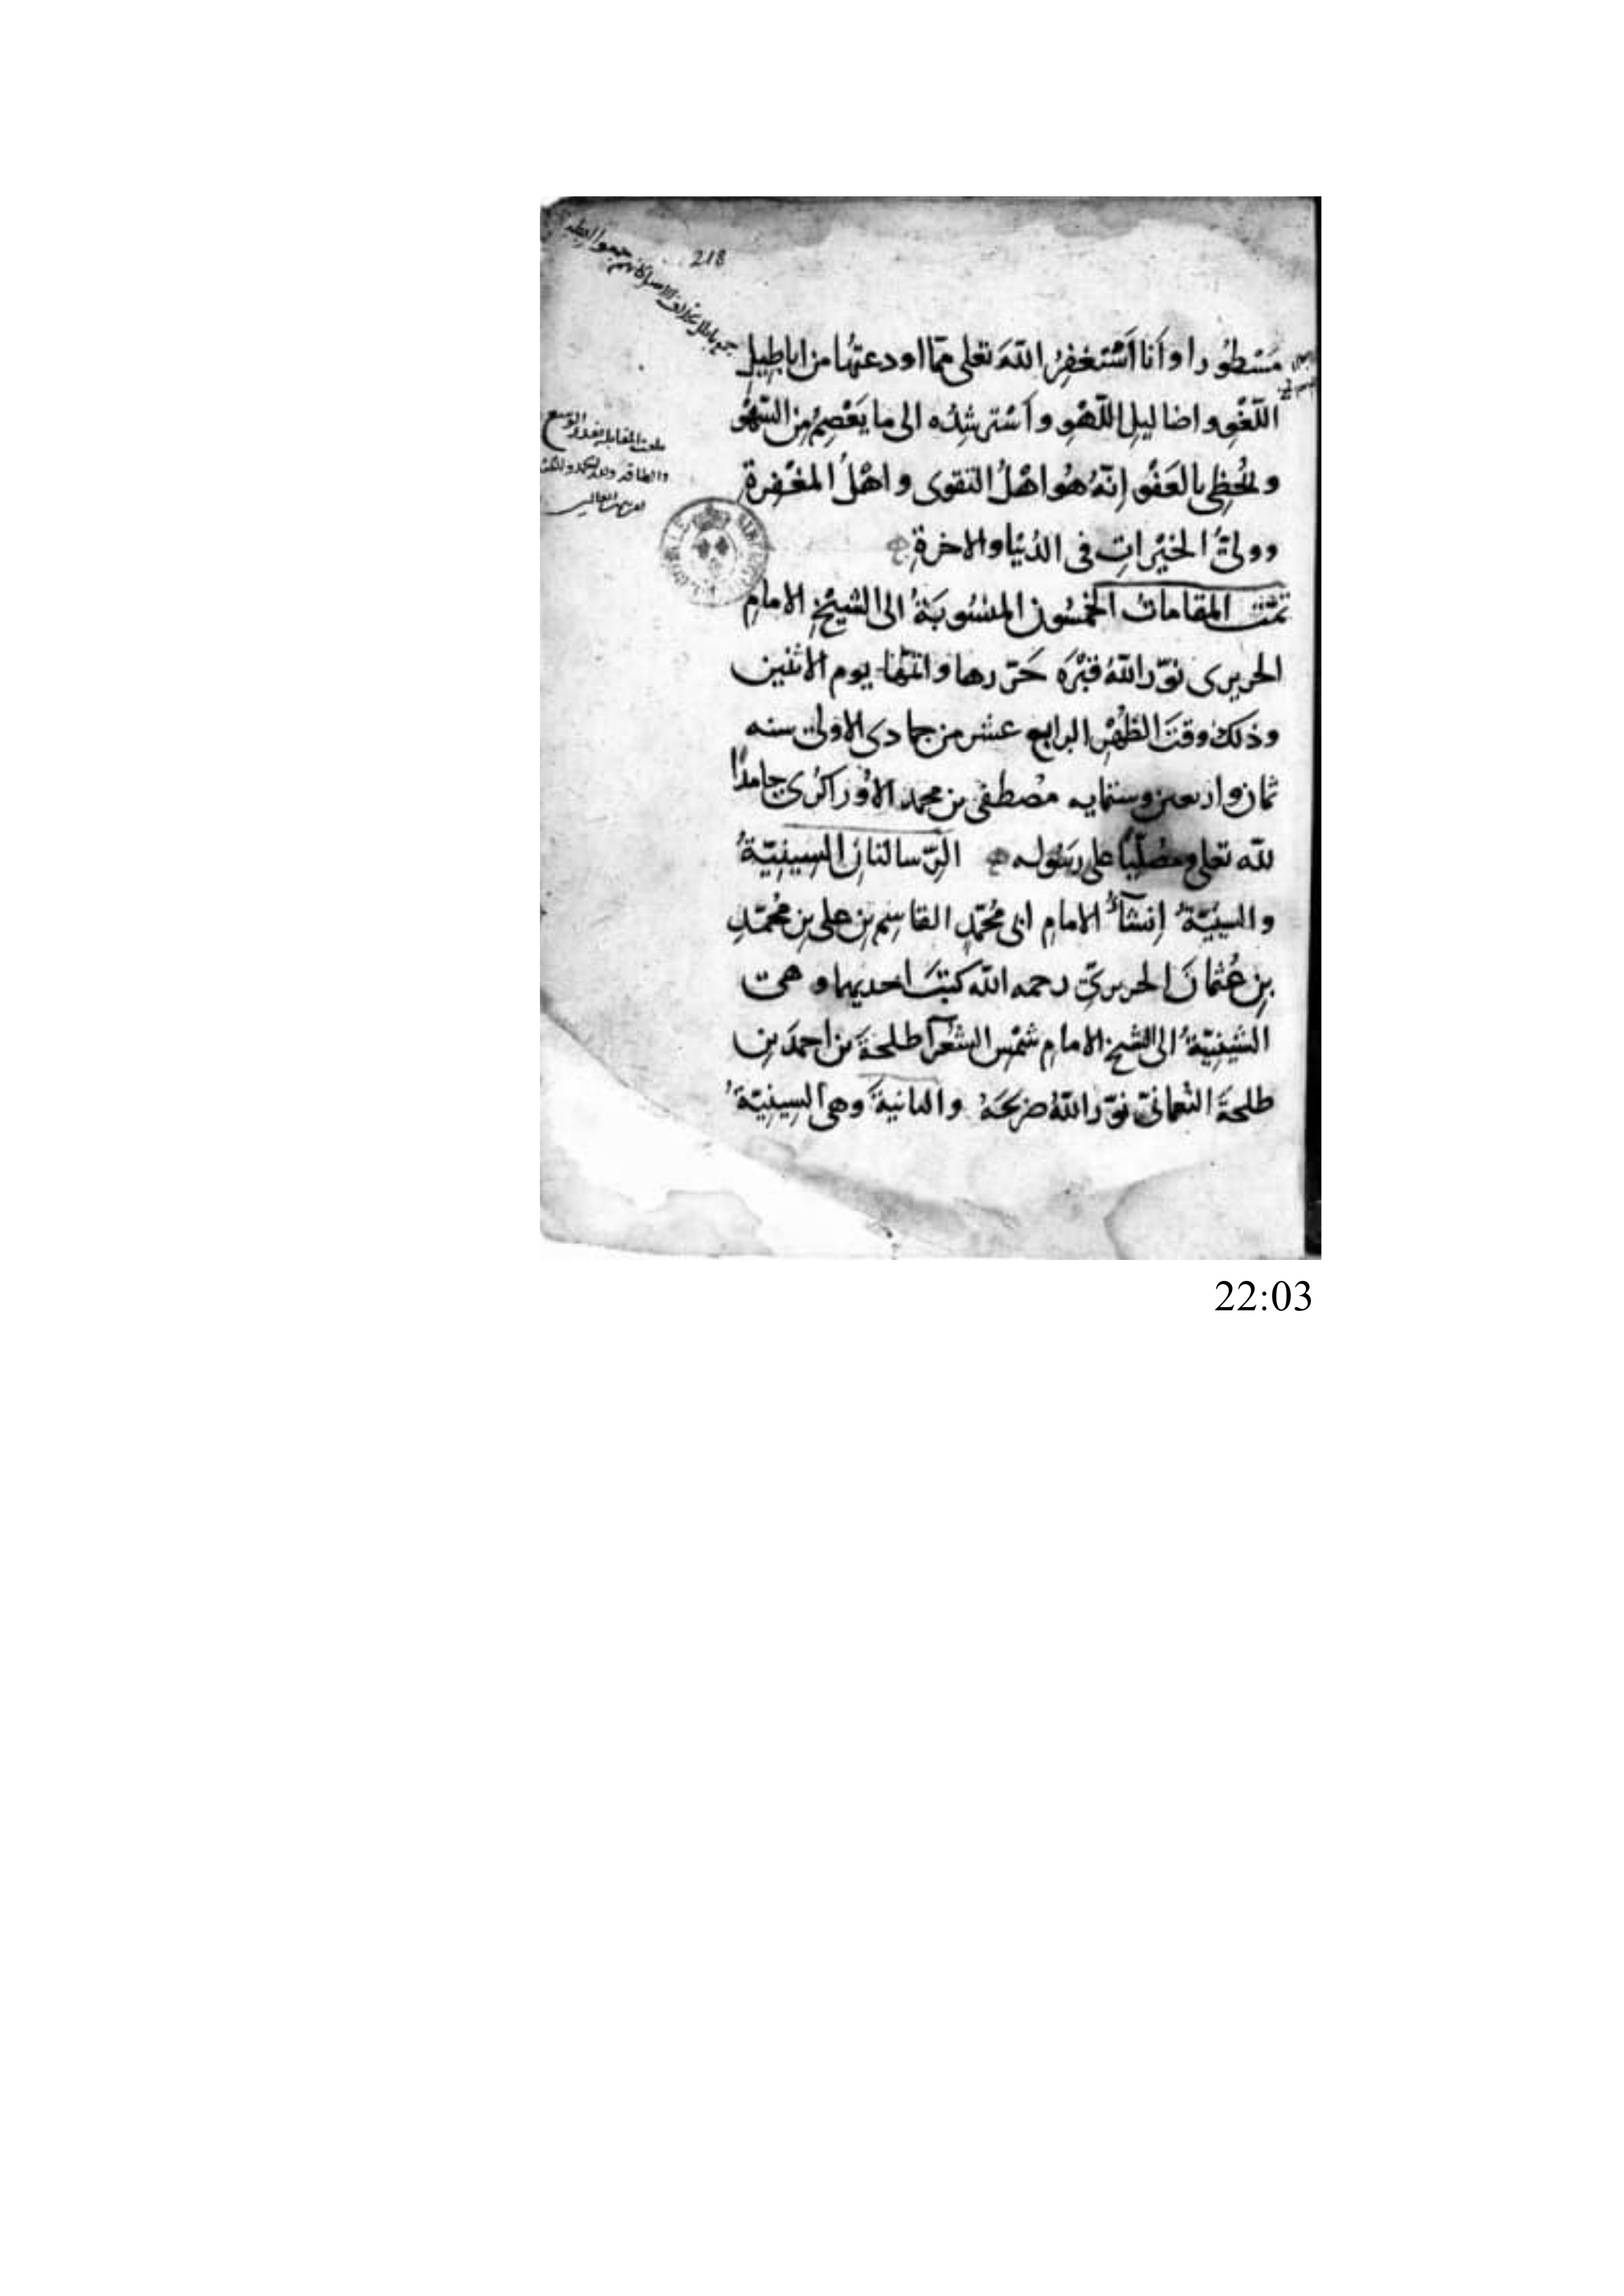 218
مَسْطُورا وأَنا أَسْتغفِرُ اللّهَ تعلى ممّا اودعتها من اباطيلِ
اللّغْوِ واضاليلِ اللّهْوِ وأَسْترشِدُه الى ما يَعْصِمُ مِن السّهْوِ
ويُحْظِي بالعَفْوِ إنّهُ هُو اهْلُ التقوى واهْلُ المغْفِرة
وولىُّ الخيْراتِ فى الدُنْيا والاخرةِ
تمّت المقاماتُ الخمْسُون المنسُوبَةُ الى الشيْخِ الامامِ
الحريرى نوّر اللّهُ قبْرَه حَرّرها وانتهَا يوم الاثنين
وذلك وقتَ الظُهْرِ الرابع عشر من جمادى الاولى سنه
ثمان واربعين وستمايه مصْطفى بن محمد حامدًا
للّه تعلى ومصَلّياً على رسَوله الرّسالتانِ السِينِيّةُ
والشِينيّةُ إنشآءُ الامامِ ابى مُحمّدٍ القاسِمِ بنِ على بنِ مُحمّدِ
بنِ عُثمانَ الحريرىّ رحمه اللّه كتبَ احديهما وهى
الشِينِيّةُ الى الشيخ الامامِ شَمْسِ الشُعَرآ طلحةَ بن احمدَ بنِ
طلحةَ النُعمانىّ نوّر اللّهُ ضريحَهُ والثانيةَ وهى السِينِيّةُ
22:03